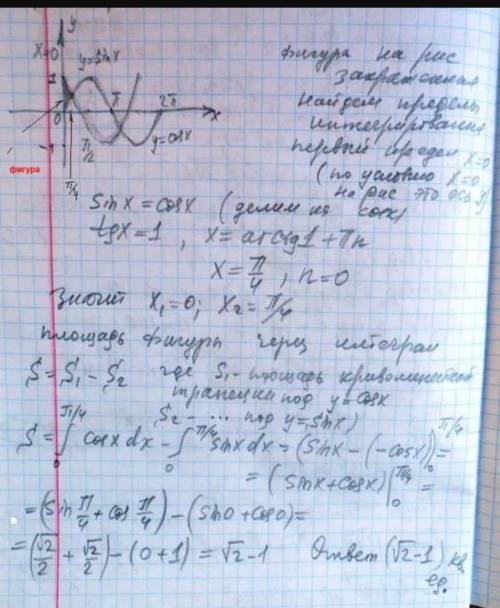 y
x=0
y=sinx
1
π
2π
x
0
-1
π/2
y=cosx
фигура
π/4
фигура на рис
закрашенная
найдем пределы
интегрирования
первый предел x=0
(по условию x=0
на рис это ось y)
sinx=cosx (делим на cosx)
tgx=1, x=arctg1+πn
x=π/4, n=0
Значит x₁=0; x₂=π/4
площадь фигуры через интеграл
S=S₁-S₂ где S₁-площадь криволинейной
трапеции под y=cosx
S₂-... под y=sinx)
S=∫₀^(π/4) cosx dx - ∫₀^(π/4) sinx dx = (sinx-(-cosx))|₀^(π/4) =
= (sinx+cosx)|₀^(π/4) =
=(sin π/4 + cos π/4) - (sin0+cos0)=
=(√2/2 + √2/2) - (0+1) = √2-1 Ответ (√2-1) кв.
ед.